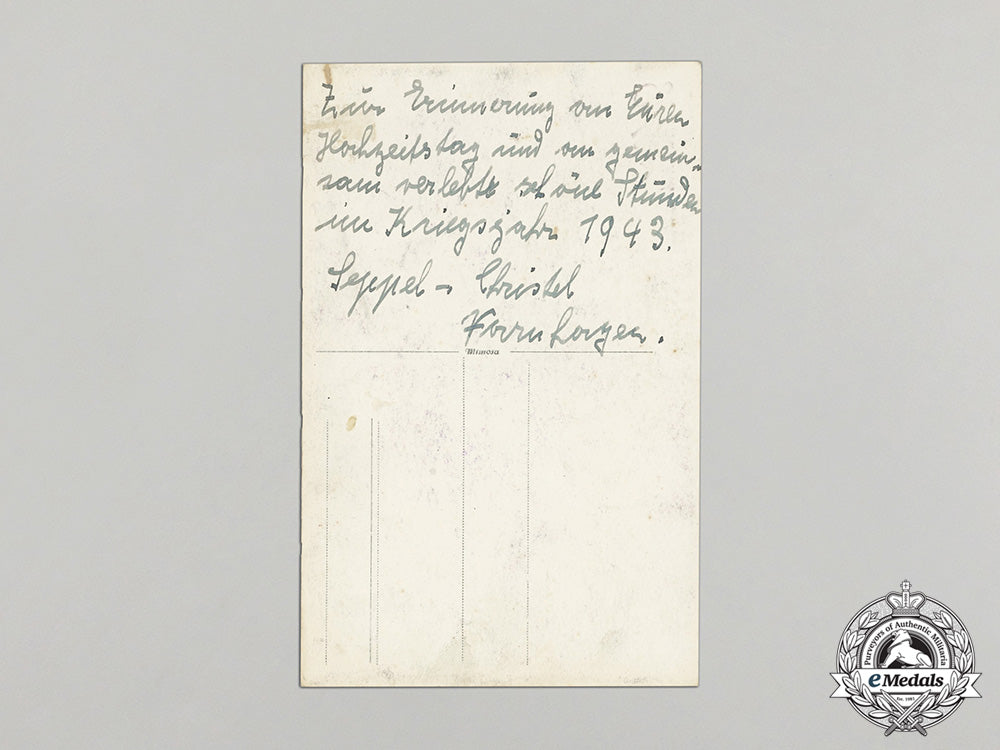 Zur Erinnerung an Euren
Hochzeitstag und an gemein-
sam verlebte schöne Stunden
im Kriegsjahr 1943.
Seppel - Christel
Mimosa
Purveyors of Authentic Militaria
eMedals
Est. 1983